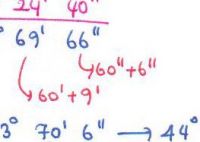 24' 40"
° 69' 66"
60"+6"
60'+9'
3° 70' 6" → 44°